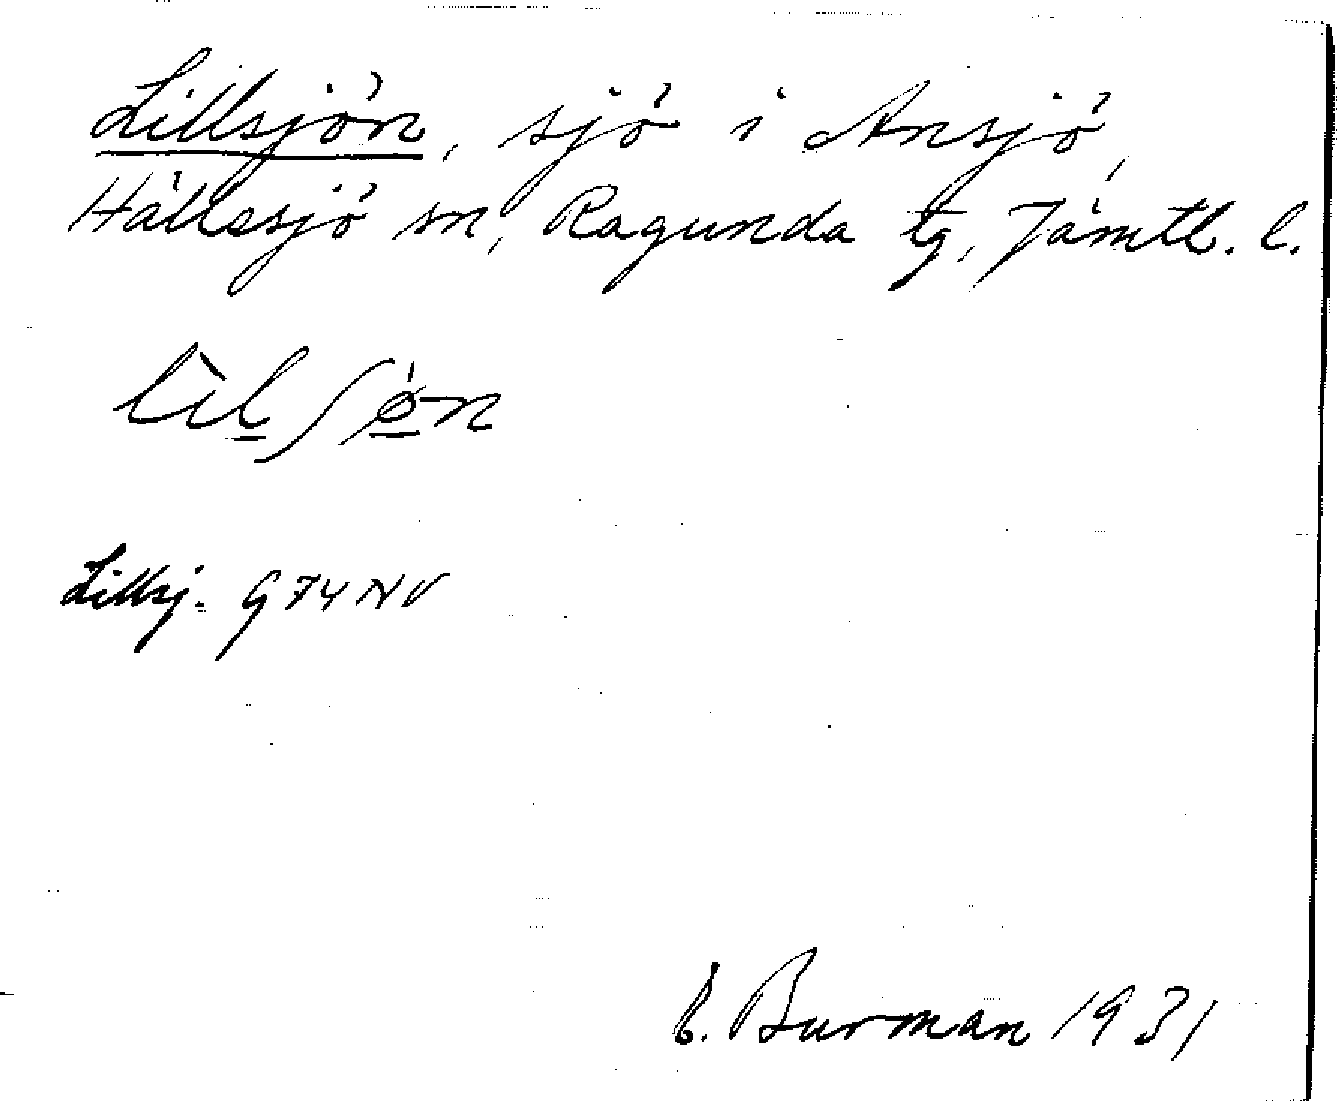 Lillsjön, sjö i Ansjö,
Hällesjö sn, Ragunda tg, Jämtl. l.
Lillsj. G74NV
E. Burman 1931